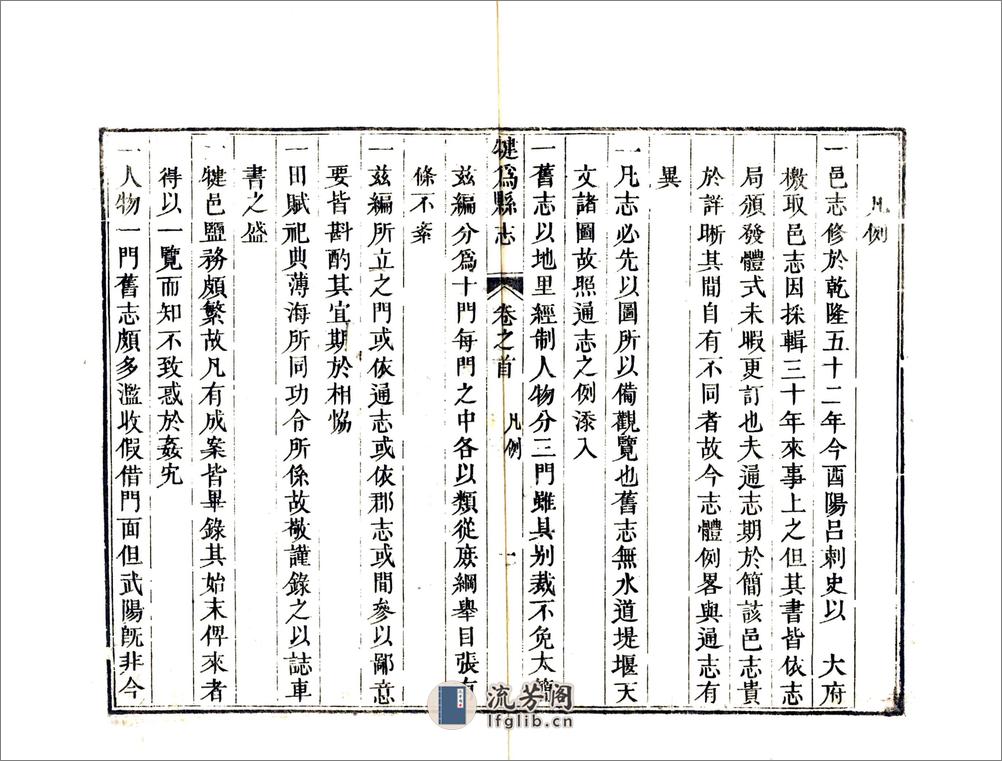 凡例
一邑志修於乾隆五十二年今酉陽呂刺史以 大府
檄取邑志因採輯三十年來事上之但其書皆依志
局頒發體式未暇更訂也夫通志期於簡該邑志貴
於詳晰其間自有不同者故今志體例畧與通志有
異
一凡志必先以圖所以備觀覽也舊志無水道堤堰天
文諸圖故照通志之例添入
一舊志以地里經制人物分三門雖具別裁不免太簡
犍爲縣志 卷之首 凡例 一
兹編分爲十門每門之中各以類從庻綱舉目張有
條不紊
一兹編所立之門或依通志或依郡志或間參以鄙意
要皆斟酌其宜期於相恊
一田賦祀典薄海所同功令所係故敬謹錄之以誌車
書之盛
一犍邑鹽務頗繁故凡有成案皆畢錄其始末俾來者
得以一覽而知不致惑於姦宄
一人物一門舊志頗多濫收假借門面但武陽旣非今
流芳阁
lfglib.cn